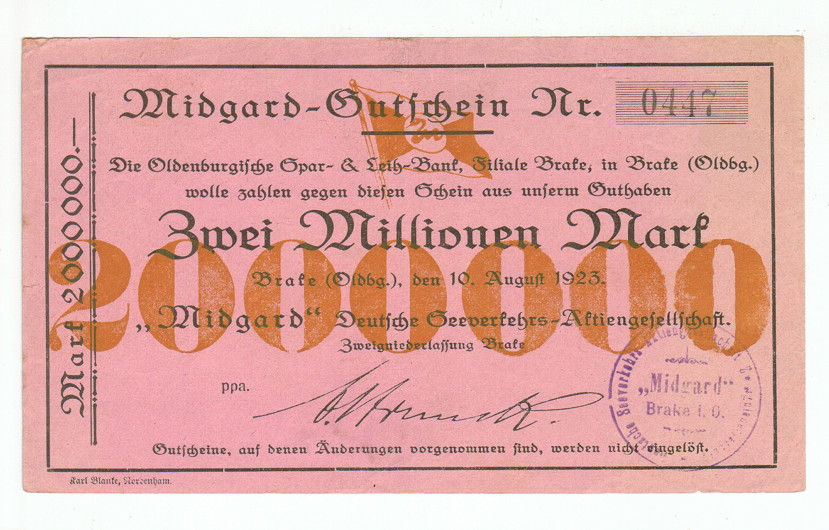 Midgard-Gutschein Nr. 0447
Die Oldenburgische Spar- & Leih-Bank, Filiale Brake, in Brake (Oldbg.)
wolle zahlen gegen diesen Schein aus unserm Guthaben
Zwei Millionen Mark
2000000
Brake (Oldbg.), den 10. August 1923.
„Midgard“ Deutsche Seeverkehrs-Aktiengesellschaft.
Zweigniederlassung Brake
ppa.
Gutscheine, auf denen Änderungen vorgenommen sind, werden nicht eingelöst.
Karl Blanke, Nordenham.
Mark 2000000.—
Deutsche Seeverkehrs-Aktiengesellschaft
„Midgard“
Brake i. O.